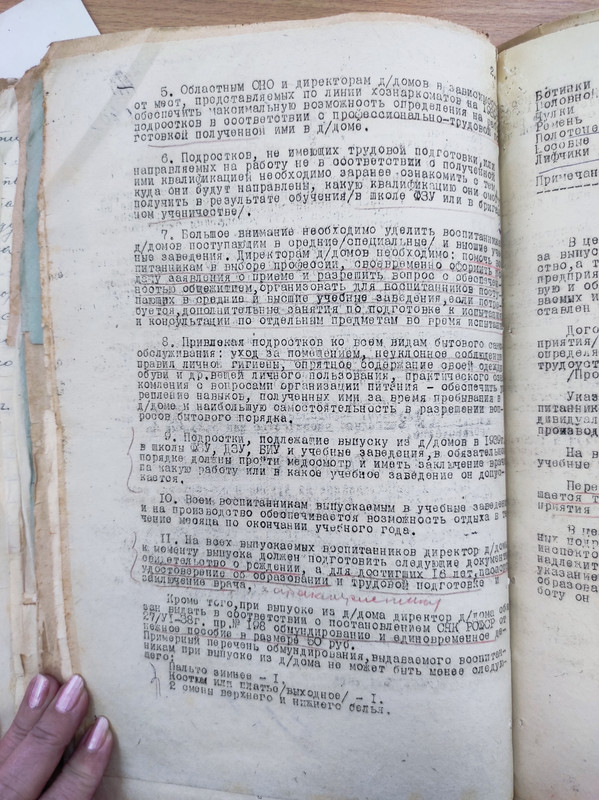 5. Областным ОНО и директорам д/домов в
от мест, представляемых по линии хознаркоматов на
обеспечить максимальную возможность определения на
подростков в соответствии с профессионально-трудовой
готовкой полученной ими в д/доме.
6. Подростков, не имеющих трудовой подготовки, или
направляемых на работу не в соответствии с полученной
ими квалификацией необходимо заранее ознакомить с тем,
куда они будут направлены, какую квалификацию они
получить в результате обучения/в школе ФЗУ или в
ном ученичестве/.
7. Большое внимание необходимо уделить
д/домов поступающим в средние/специальные/ и высшие
ные заведения. Директорам д/домов необходимо: помочь
питанникам в выборе профессии, своевременно оформить
дачу заявления о приеме и разрешить вопрос с
ностью общежитием,организовать для воспитанников
пающих в средние и высшие учебные заведения,если
буется,дополнительные занятия по подготовке к
и консультации по отдельным предметам во время
8. Привлекая подростков ко всем видам бытового
обслуживания: уход за помещением, неуклонное соблюдение
правил личной гигиены, опрятное содержание своей одежды
обуви и др.вещей личного пользования, практического
комления с вопросами организации питания - обеспечить
репление навыков, полученных ими за время пребывания в
д/доме и наибольшую самостоятельность в разрешении воп-
росов бытового порядка.
9. Подростки, подлежащие выпуску из д/домов в
в школы ФЗУ, и учебные заведения,в обязательном
порядке должны пройти медосмотр и иметь заключение врача
на какую работу или в какое учебное заведение он допус-
кается.
10. Всем воспитанникам выпускаемым в учебные заведения
и на производство обеспечивается возможность отдыха в те-
чение месяца по окончании учебного года.
11. На всех выпускаемых воспитанников директор д/дома
к моменту выпуска должен подготовить следующие документы
свидетельство о рождении, а для достигших 16 лет,паспорт
удостоверение об образовании и трудовой подготовке и
заключение врача, характеристику
Кроме того,при выпуске из д/дома директор д/дома
зан выдать в соответствии с постановлением СНК РСФСР от
27/VI-38г. пр.№ 196 обмундирование и единовременное де-
нежное пособие в размере 50 руб.
Примерный перечень обмундирования,выдаваемого воспитан-
никам при выпуске из д/дома не может быть менее следую-
щего:
Пальто зимнее - 1
Костюм или платье/выходное/ - 1.
2 смены верхнего и нижнего белья.
2.
Ботинки
Головной
Чулки
Ремень
Полотенце
Носовые
Лифчики
Примечан
В це
за выпуск
ство,а т
предприя
вую и об
ваемых и
ставлен
Догов
приятия/
определя
трудоуст
/Про
Указ
питанник
дивидуал
производ
На в
учебные
Пере
шается т
приятия
В це
ных подр
инспекто
надлежит
указание
образова
боту он